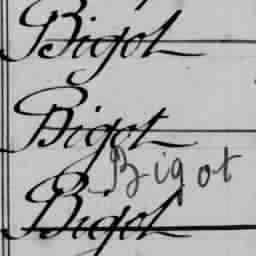 Bigot
Bigot
Bigot
Bigot